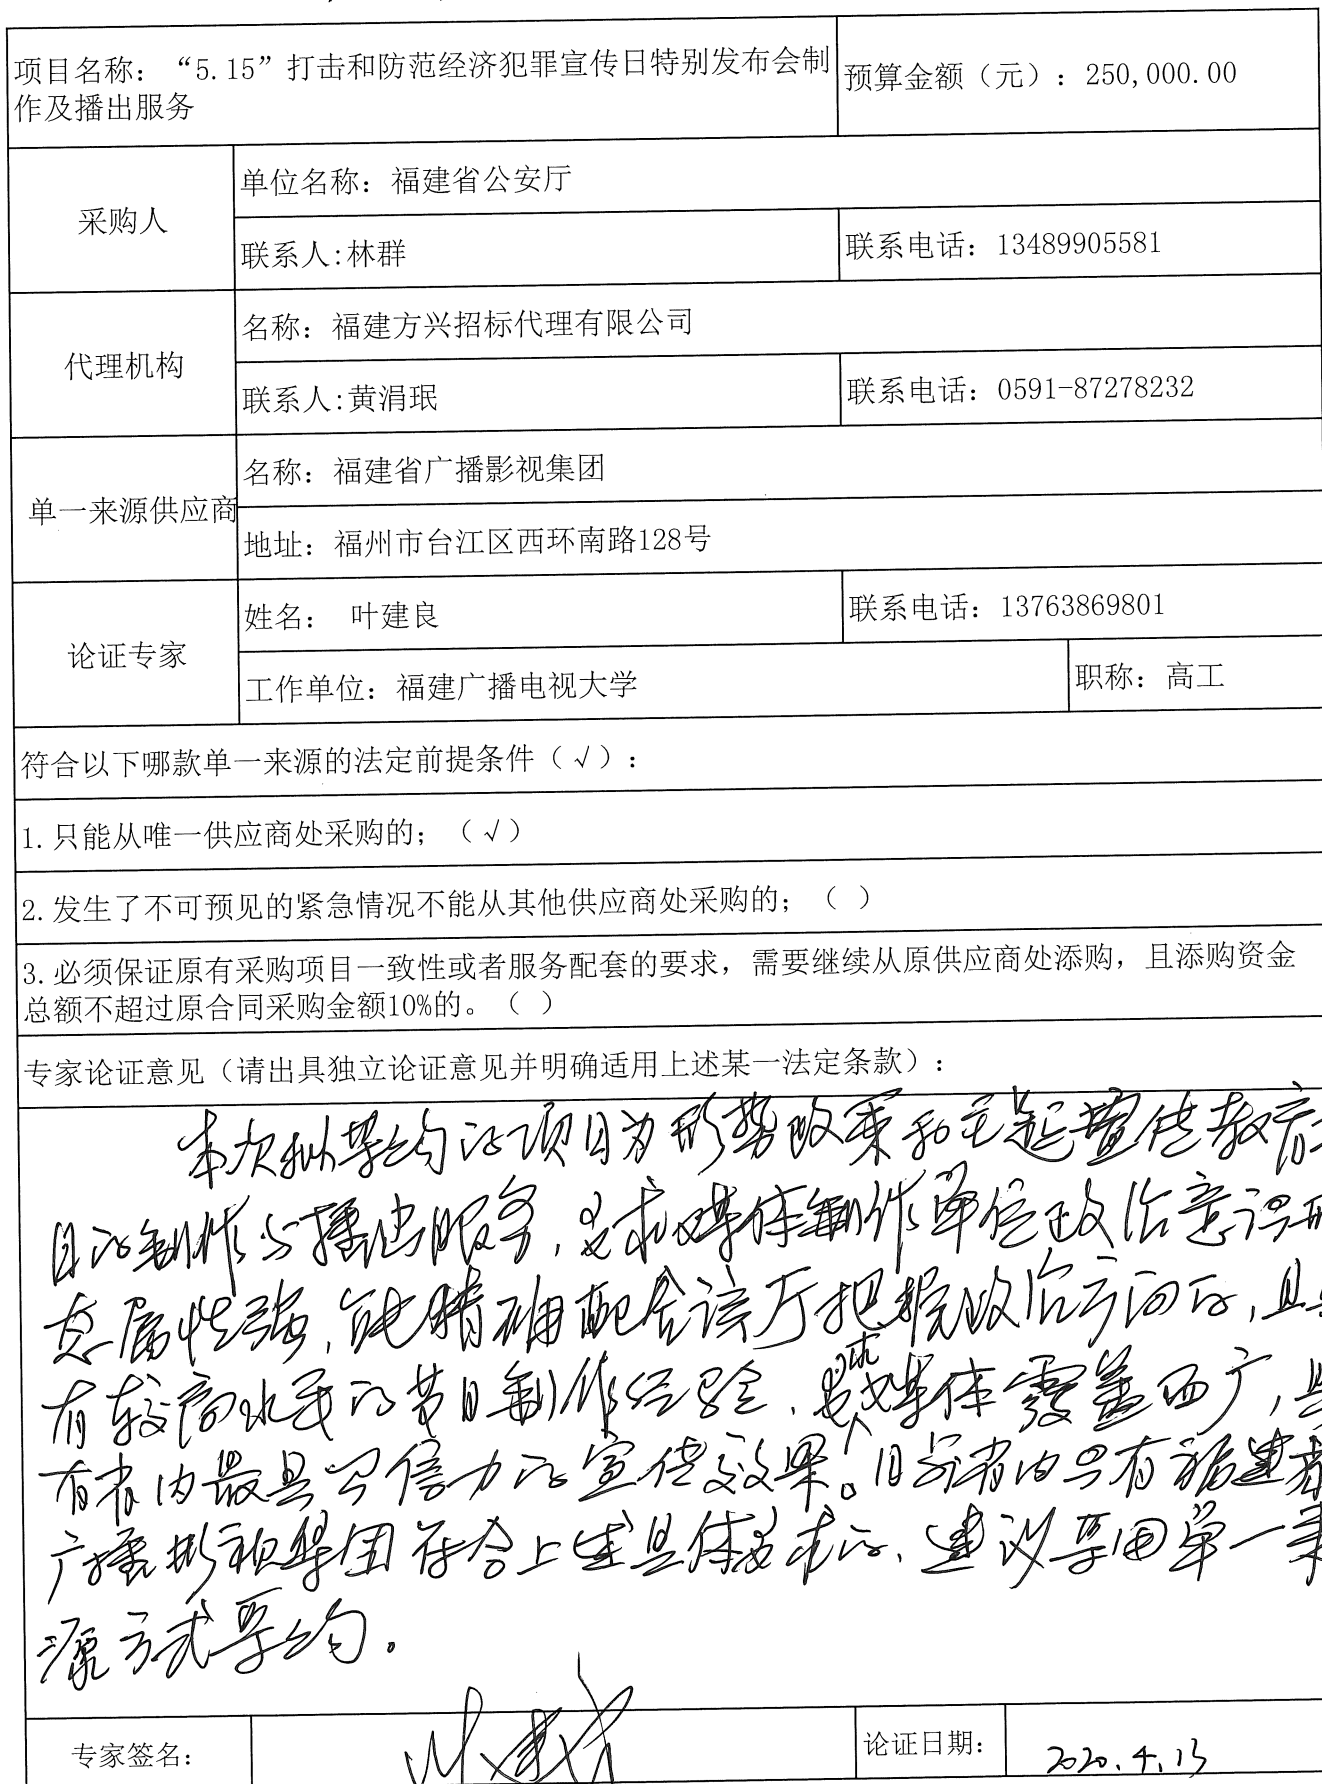 项目名称：“5.15”打击和防范经济犯罪宣传日特别发布会制
作及播出服务
预算金额（元）：250,000.00
采购人
单位名称：福建省公安厅
联系人:林群
联系电话：13489905581
代理机构
名称：福建方兴招标代理有限公司
联系人:黄涓珉
联系电话：0591-87278232
单一来源供应商
名称：福建省广播影视集团
地址：福州市台江区西环南路128号
论证专家
姓名： 叶建良
联系电话：13763869801
工作单位：福建广播电视大学
职称：高工
符合以下哪款单一来源的法定前提条件（√）：
1.只能从唯一供应商处采购的；（√）
2.发生了不可预见的紧急情况不能从其他供应商处采购的；（ ）
3.必须保证原有采购项目一致性或者服务配套的要求，需要继续从原供应商处添购，且添购资金
总额不超过原合同采购金额10%的。（ ）
专家论证意见（请出具独立论证意见并明确适用上述某一法定条款）：
本次拟采购的项目为形势政策和主题宣传教育
目的制作与播出服务，要求媒体制作单位政治意识形
态属性强，能精确配合该厅把握政治方向的，且具
有较高水平的节目制作经验，要求媒体覆盖面广，具
有省内最具公信力的宣传效果。目前省内只有福建省
广播影视集团符合上述具体要求的，建议采用单一来
源方式采购。
专家签名：
叶建良
论证日期：
2020.4.13